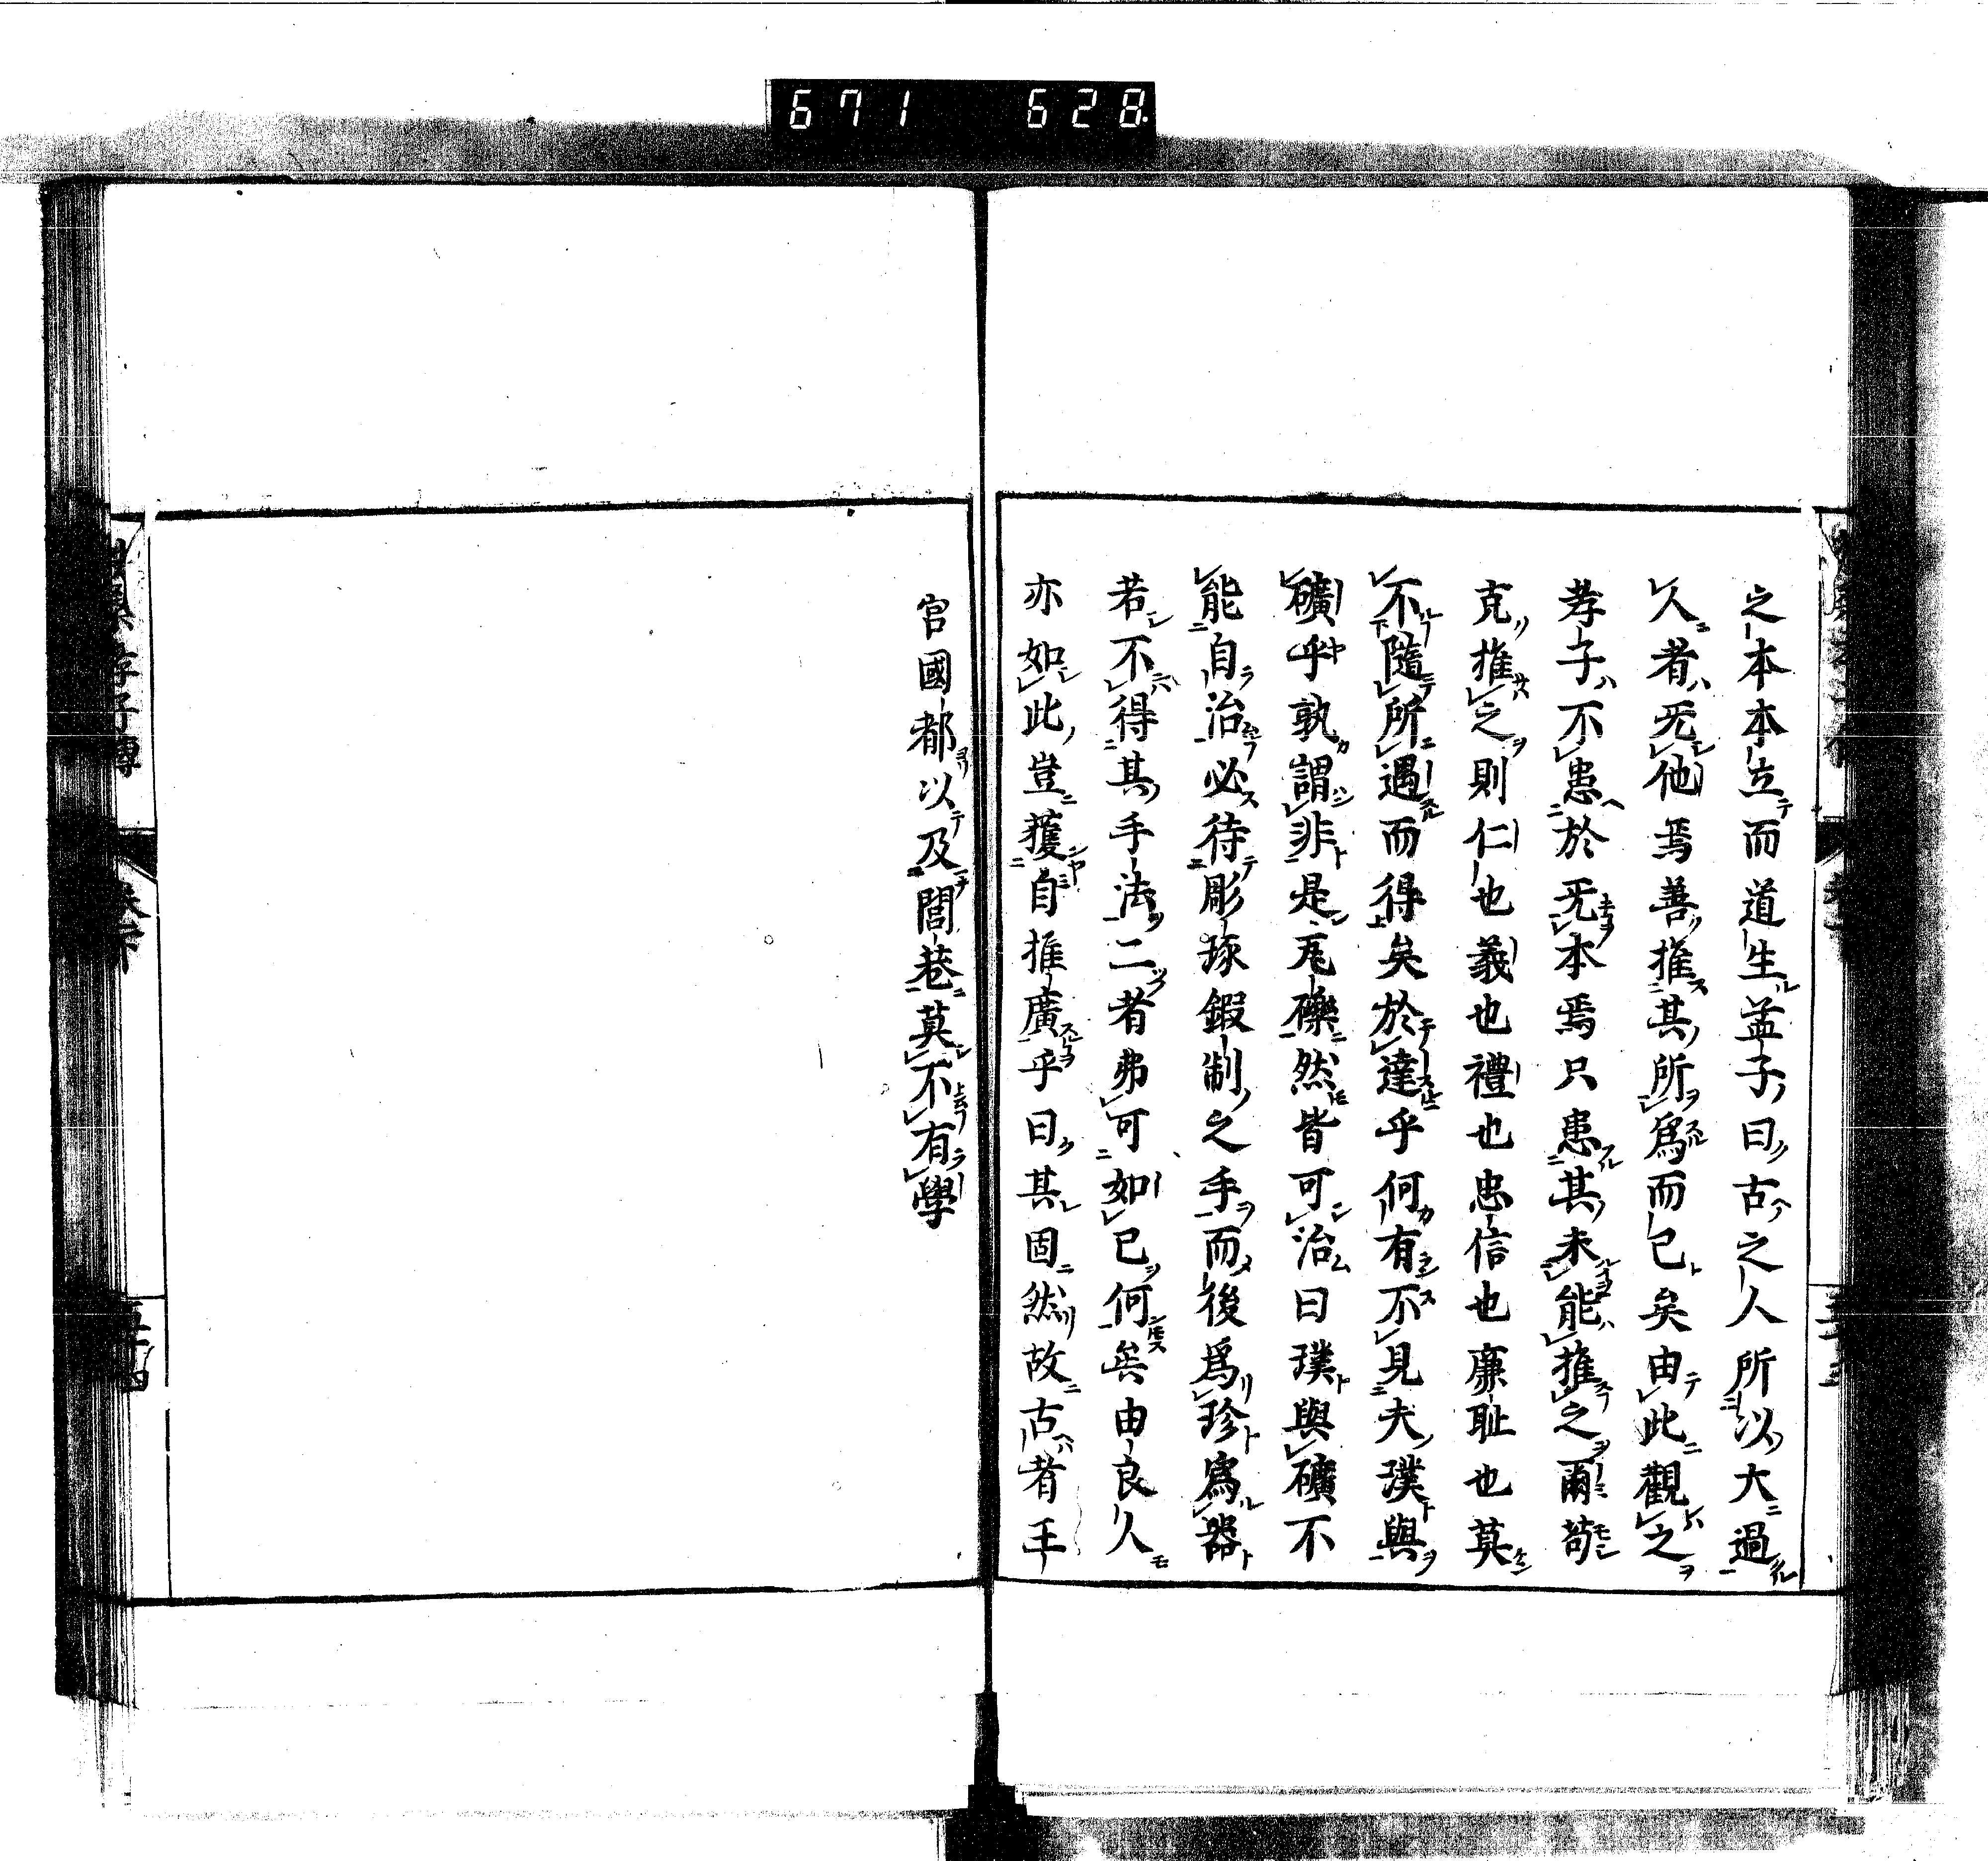 671 628
之本本立而道生孟子曰古之人所以大過
人者无他焉善推其所爲而已矣由此觀之
孝子不患於无本焉只患其未能推之爾苟
克推之則仁也義也禮也忠信也廉耻也莫
不隨所遇而得矣於達乎何有不見夫璞與
礦乎孰謂非是瓦礫然皆可治曰璞與礦不
能自治必待彫琢鍜制之手而後爲珍爲器
若不得其手法二者弗可如已何矣由良人
亦如此豈獲自推廣乎曰其固然故古者王
宮國都以及閭巷莫不有學